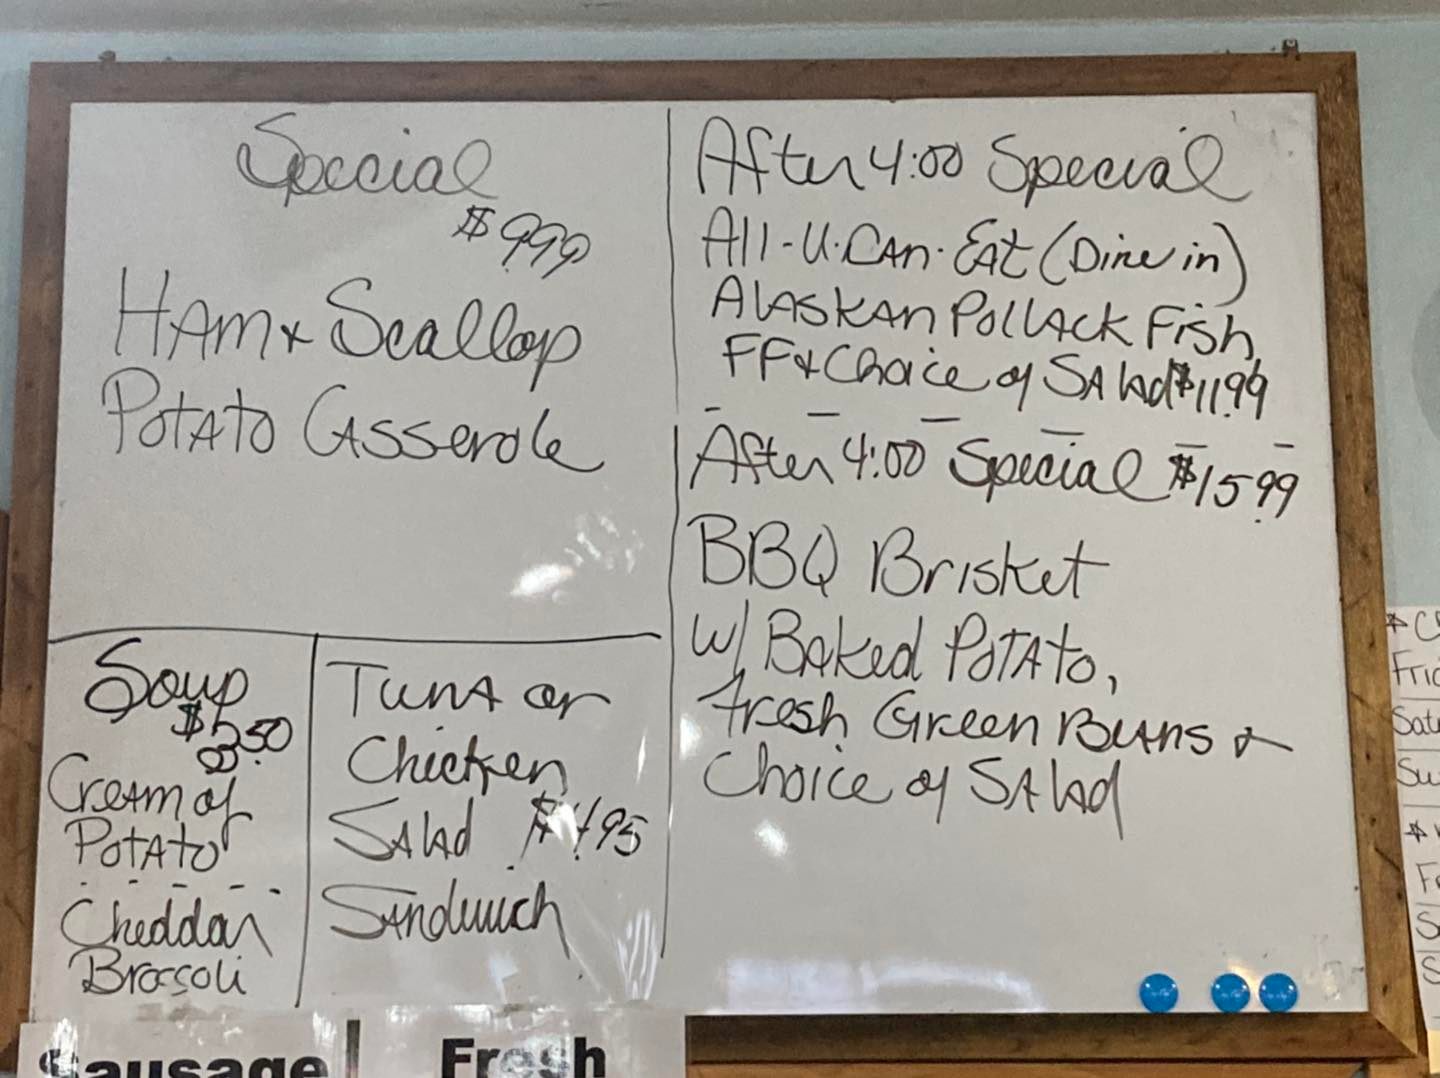 Special
$9.99
Ham & Scallop
Potato Casserole
After 4:00 Special
All-U-Can-Eat (Dine in)
Alaskan Pollack Fish,
FF & Choice of Salad $11.99
After 4:00 Special $15.99
BBQ Brisket
w/ Baked Potato,
fresh Green Beans &
Choice of Salad
Soup
Cream of
Potato
Cheddar
Brossoli
Tuna or
Chicken
Salad $4.95
Sandwich
Sausage
Fresh